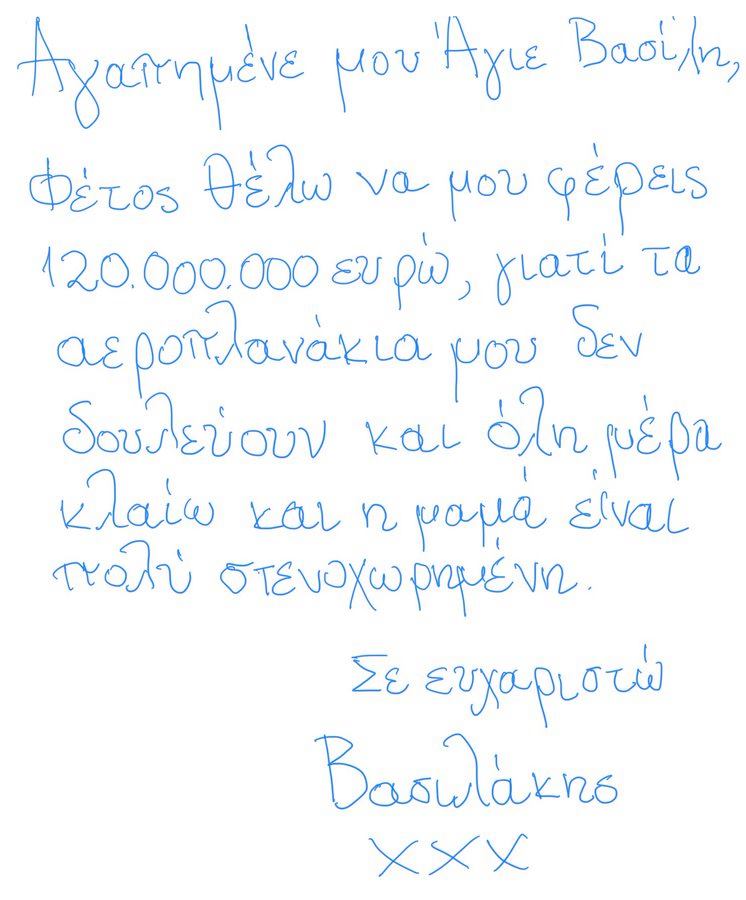 Αγαπημένε μου Άγιε Βασίλη,
Φέτος θέλω να μου φέρεις
120.000.000 ευρώ, γιατί τα
αεροπλανάκια μου δεν
δουλεύουν και όλη μέρα
κλαίω και η μαμά είναι
πολύ στενοχωρημένη.
Σε ευχαριστώ
Βασωλάκης
XXX